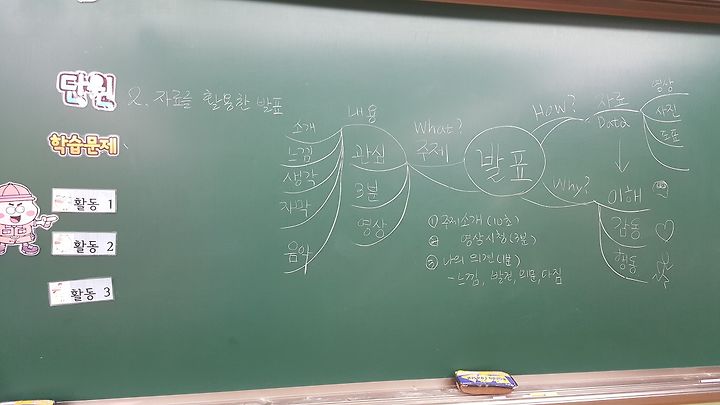 단원
2. 자료를 활용한 발표
학습문제
활동 1
활동 2
활동 3
발표
What?
주제
내용
관심
3분
영상
소개
느낌
생각
자막
음악
How?
자료
Data
영상
사진
도표
Why?
이해
감동
행동
① 주제소개 (10초)
② 영상시청 (3분)
③ 나의 의견 (1분)
- 느낌, 발견, 의문, 다짐